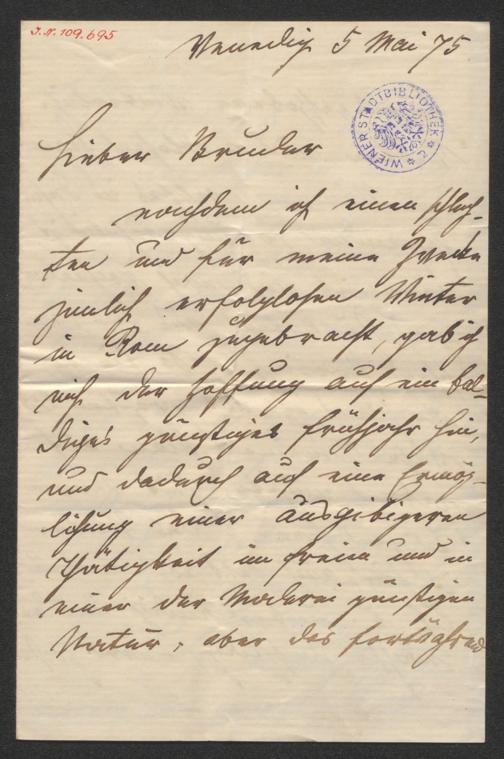 J.N. 109.695
Venedig 5 Mai 75
WIENER STADTBIBLIOTHEK
Lieber Bruder
nachdem ich einen schlech-
ten und für meine Zwecke
zimlich erfolglosen Winter
in Rom zugebracht, gab ich
mich der Hoffnung auf ein bal-
diges günstiges Frühjahr hin,
und dadurch auf eine Ermög-
lichung einer ausgibigeren
Thätigkeit im freien und in
einer der Malerei günstigen
Natur, aber das fortwährend